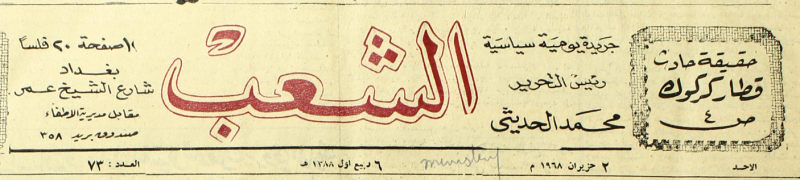 حقيقة حادث
قطار كركوك
ص ٤
جريدة يومية سياسية
رئيس التحرير
محمد الحديثي
الشعب
صفحة ٢٠ فلساً
بغداد
شارع الشيخ عمر
مقابل مديرية الاطفاء
صندوق بريد ٣٥٨
الاحد ٢ حزيران ١٩٦٨ م ٦ ربيع اول ١٣٨٨ هـ العدد : ٧٣